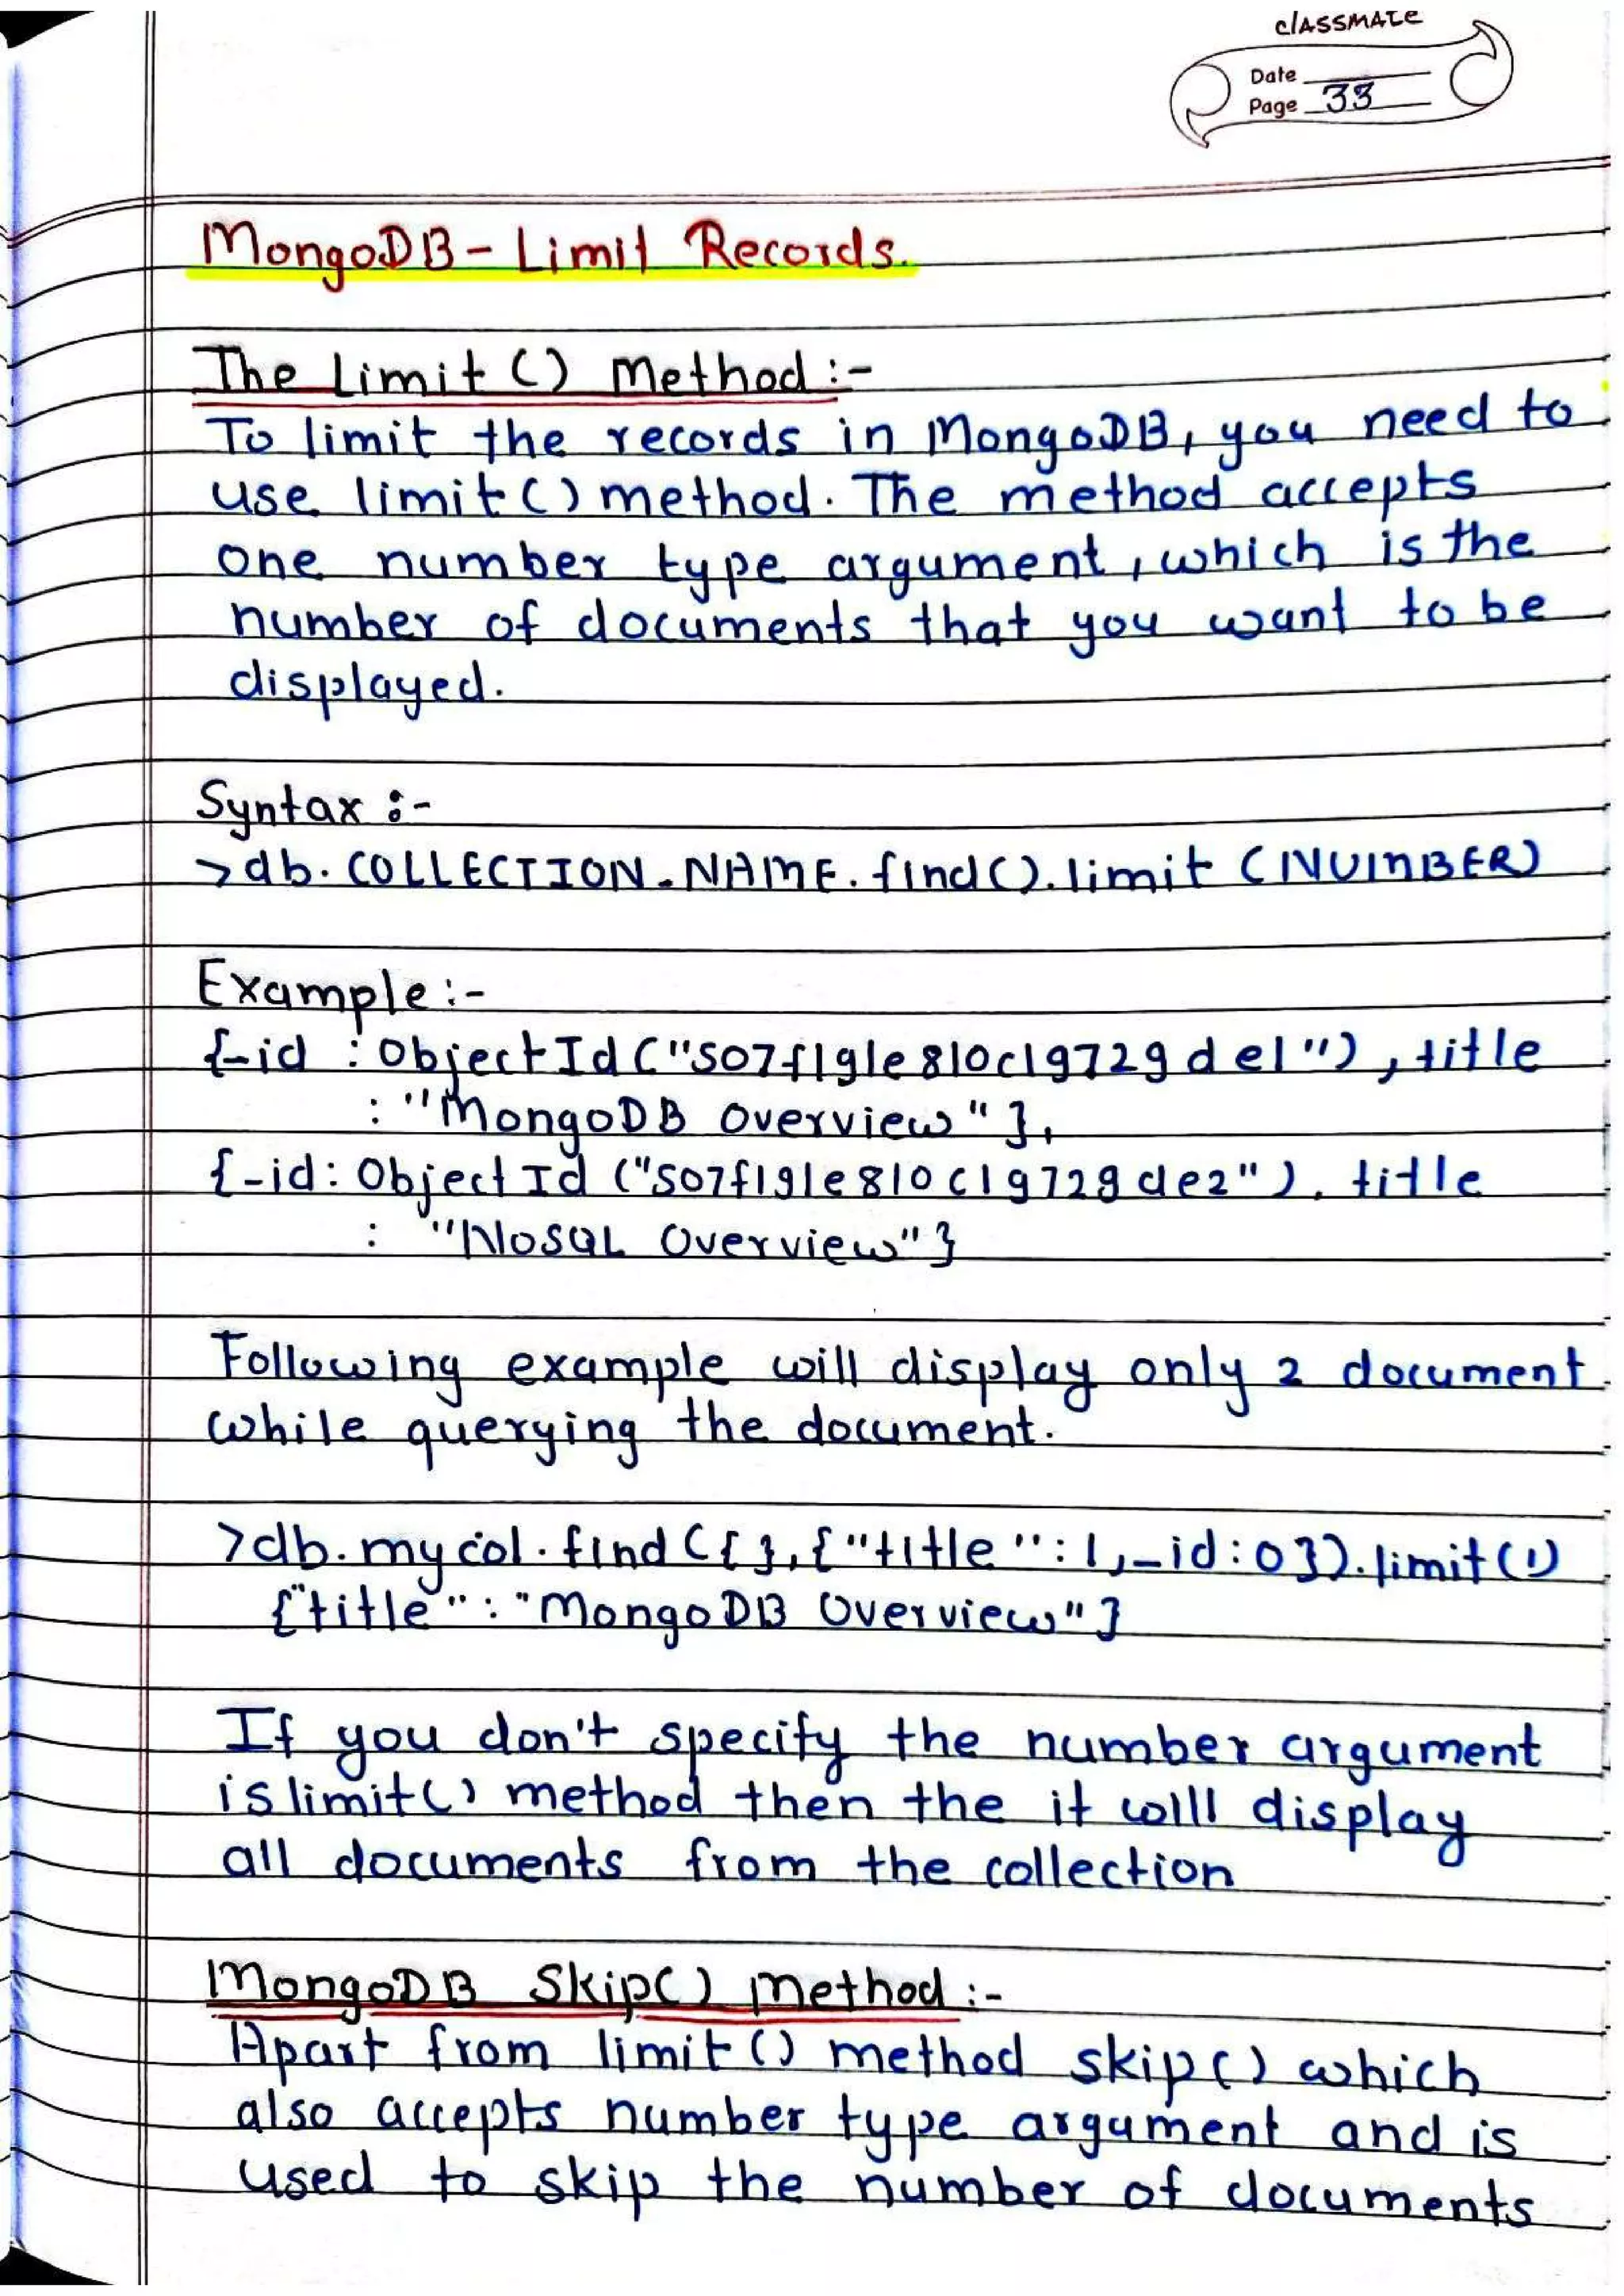 classmate
Date
Page 33
MongoDB - Limit Records.
The Limit () Method :-
To limit the records in MongoDB, you need to
use limit () method. The method accepts
one number type argument, which is the
number of documents that you want to be
displayed.
Syntax :-
>db. COLLECTION_NAME. find(). limit (NUMBER)
Example :-
{_id : ObjectId ("507f191e810c19729de1"), title
: "MongoDB Overview"},
{_id: Object Id ("507f191e810c19729de2"), title
: "NoSQL Overview"}
Following example will display only 2 document
while querying the document.
>db.mycol.find({},{"title":1,_id:0}).limit(1)
{"title" : "MongoDB Overview"}
If you don't specify the number argument
is limit() method then the it will display
all documents from the collection
MongoDB Skip() Method :-
Apart from limit () method skip() which
also accepts number type argument and is
used to skip the number of documents